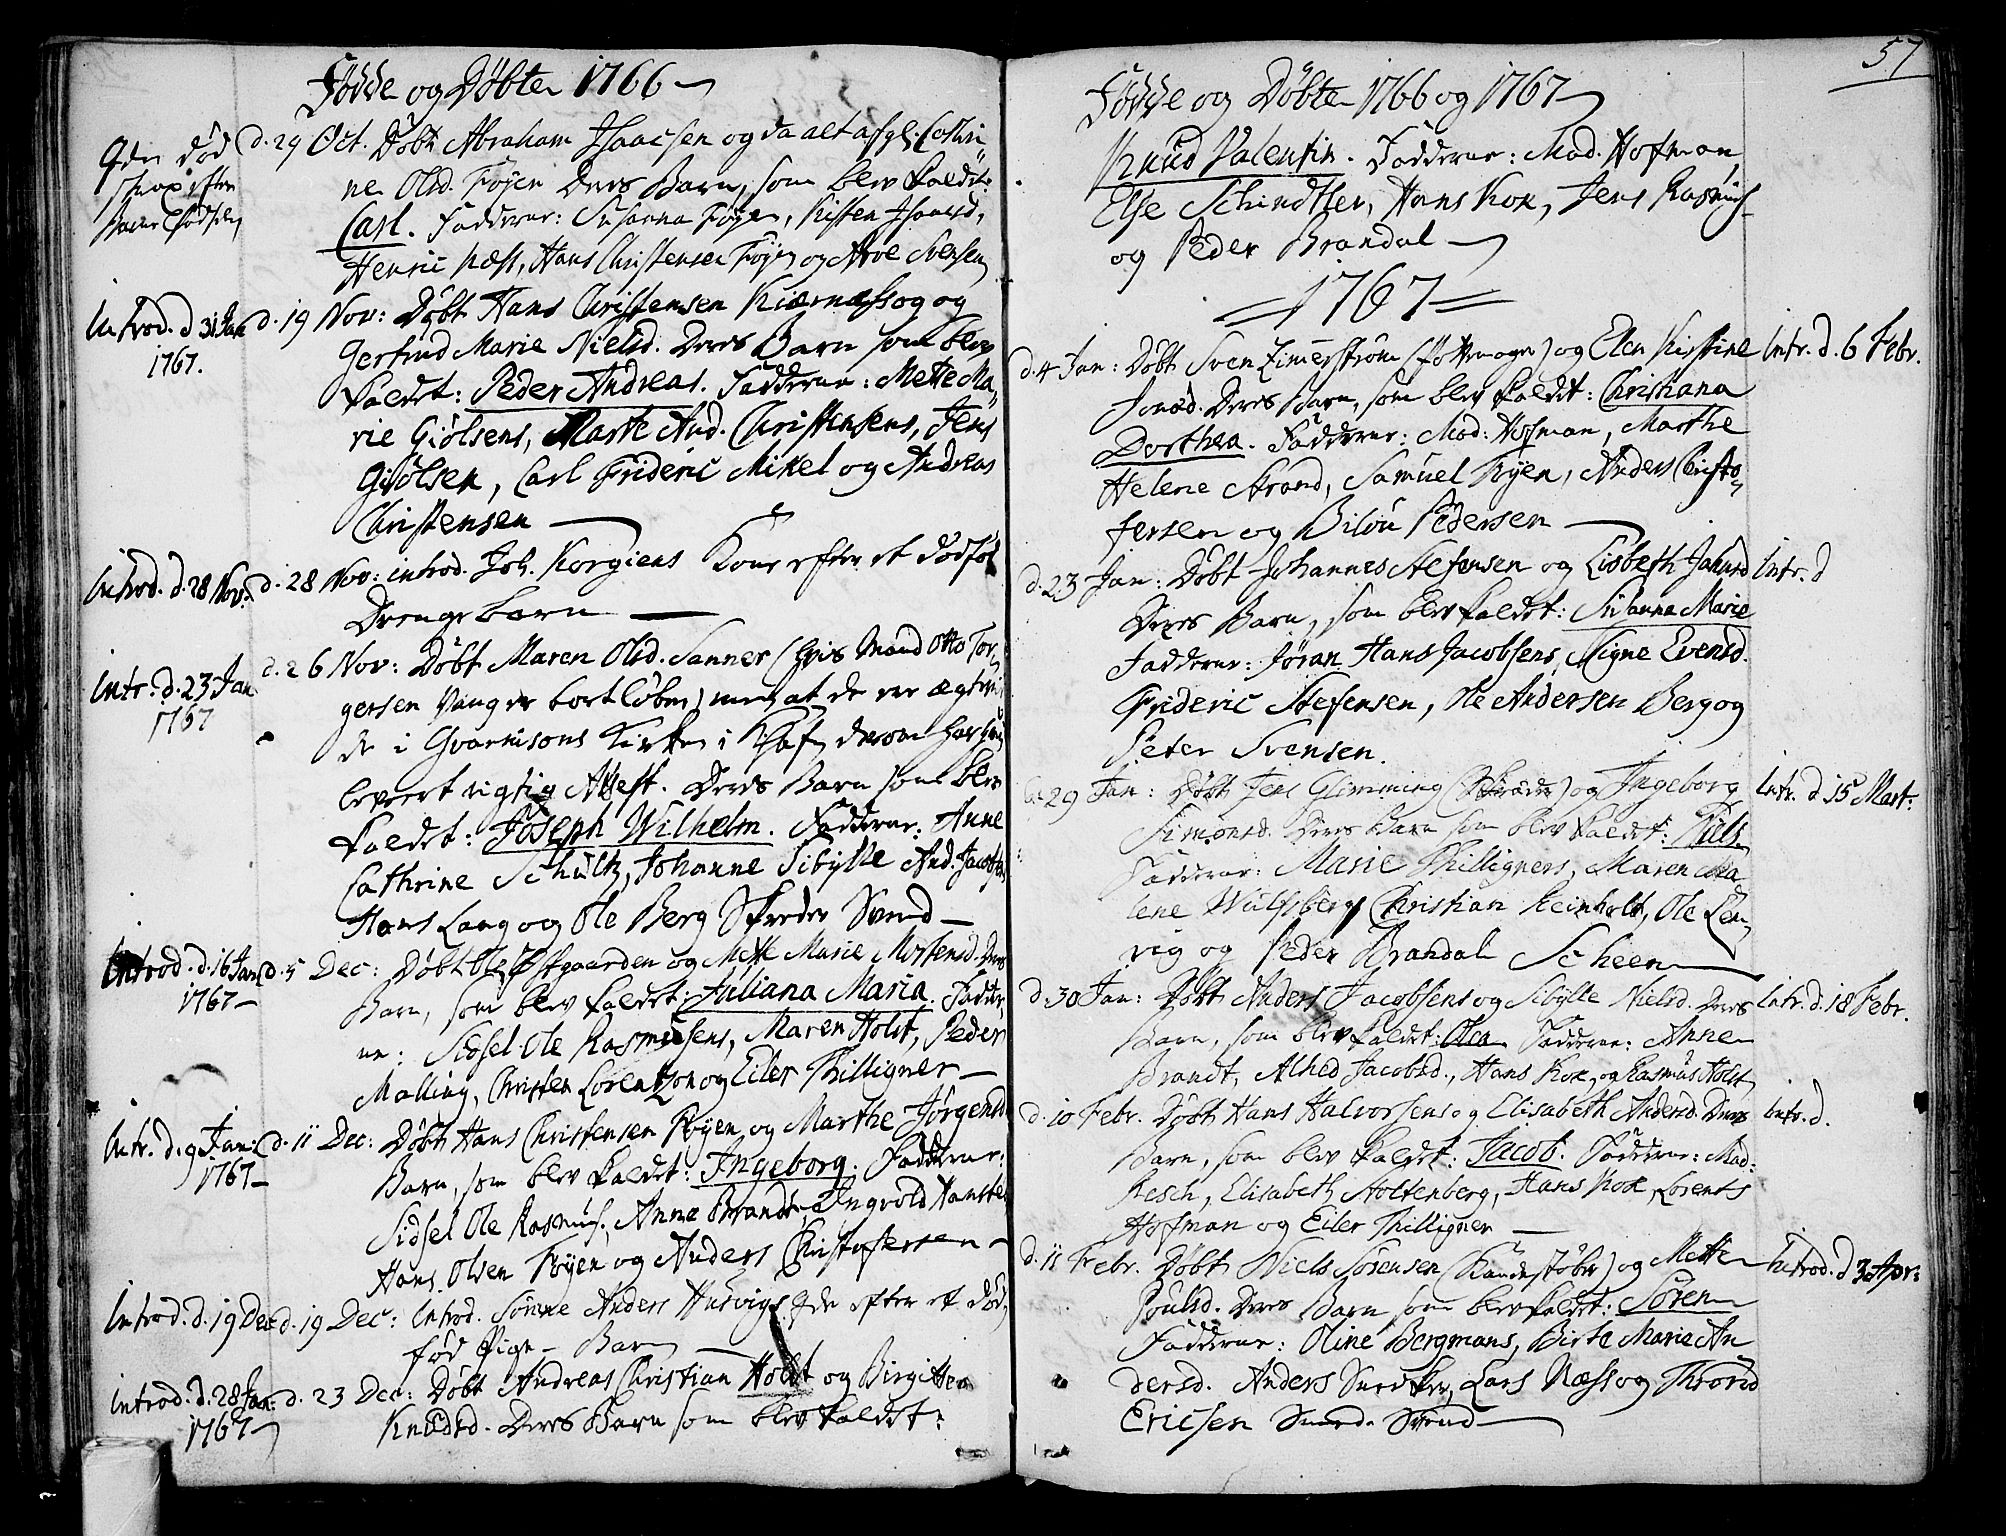 Fødde og Døbte 1766
Qden død
strax efter
Barne Fødselen
d. 29 Oct. Døbt Abraham Isaacsen og da alt afgl. Cathri
ne Olsd. Føyen Deres Barn, som blev kaldet:
Carl. Fadderne: Susanna Føyen, Kisten Isaacsd,
Henric Næss, Hans Christensen Føyen og Arve Svensen
Introd. d. 31 Jan
1767.
d. 19 Nov: Døbt Hans Christensen Kiærnæss og og
Gertrud Marie Nielsd. Deres Barn som blev
kaldet: Peder Andreas. Fadderne: Mette Ma,
rie Giølsens, Marte And. Christensens, Jens
Giølsen, Carl Frideric Mikel og Andreas
Christensen
Introd. d. 28 Nov:
d. 28 Nov: introd. Joh. Korgiens Kone efter et dødfød
Drengebarn
Intr. d. 23 Jan
1767
d. 26 Nov: Døbt Maren Olsd. Sanner (hvis Mand Otto Tor,
gersen Vang er bortløben) men at de var ægtevi
de i Gvarnisons Kirken i Kbhafn derom har hun
leveert rigtig Attest. Deres Barn som blev
kaldet: Joseph Wilhelm. Fadderne: Anne
Cathrine Schultz, Johanne Sibylle And. Jacobsen
Hans Lang og Ole Berg Skreder Svend
Introd. d. 16 Jan
1767
d. 5 Dec: Døbt Ole Østgaarden og Mette Marie Mortensd. Deres
Barn, som blev kaldet: Juliana Maria. Fadder,
ne: Sidsel Ole Rasmusens, Maren Holst, Peder
Malling, Christen Lorentzon og Eiler Thilligner
Intr. d. 9 Jan:
1767
d. 11 Dec: Døbt Hans Christensen Føyen og Marthe Jørgensd
Barn, som blev kaldet: Ingeborg. Fadderne:
Sidsel Ole Rasmus. Anne Brandt, Ingvold Hansten
Hans Olsen Føyen og Anders Christofersen
Introd. d. 19 Dec
d. 19 Dec: Introd. Anders Husvigs Qde efter et død,
fød Pige-Barn
Introd. d. 28 Jan:
1767
d. 23 Dec: Døbt Andreas Christian Holst og Birgitte
Knudsd. Deres Barn som blev kaldet:
57
Fødde og Døbte 1766 og 1767
Knud Valentin. Fadderne: Mad. Hofman,
Else Schindtler, Hans Kox, Jens Rasmus
og Peder Brandal
1767
d. 4 Jan: Døbt Sven Zimerstrøm () og Elen Kirstine
Jonsd. Deres Barn, som blev kaldet: Christiana
Dorthea. Fadderne: Mad: Hofman, Marthe
Helene Strand, Samuel Føyen, Anders Christo,
fersen og Pedersen
Intr. d. 6 Febr.
d. 23 Jan: Døbt Johannes Stefensen og Lisbeth Jahnsd
Deres Barn, som blev kaldet: Susanna Marie
Fadderne: Jøran Hans Jacobsens, Signe Evensd.
Frideric Stefensen, Ole Andersen Berg og
Peter Svensen.
Intr. d
d. 29 Jan: Døbt Jens Glimming (Skræder) og Ingeborg
Simonsd. Deres Barn som blev kaldet: Niels.
Fadderne: Marie Thilligners, Maren Ma
lene Wulfsberg, Christian Reinholt, Ole Len,
vig og Peder Brandal Scheen
Intr. d. 15 Mart:
d. 30 Jan: Døbt Anders Jacobsens og Sibylle Nielsd. Deres
Barn, som blev kaldet: Olea Fadderne: Anne
Brandt, Alhed Jacobsd., Hans Kox, og Rasmus Holst
Intr. d. 18 Febr.
d. 10 Febr. Døbt Hans Halvorsens og Elisabeth Andersd. Deres
Barn, som blev kaldet: Jacob. Fadderne: Mad:
Resch, Elisabeth Stoltenberg, Hans Kox, Lorents
Hofman og Eiler Thilligner
Intr. d.
d. 11 Febr. Døbt Niels Sørensen (Kandestøber) og Mette
Poulsd. Deres Barn som blev kaldet: Søren
Fadderne: Oline Bergmans, Birte Marie An
dersd. Anders Snedker, Lars Næss og Thorvd
Ericsen Smed-Svend
Introd. d 3 Apr: